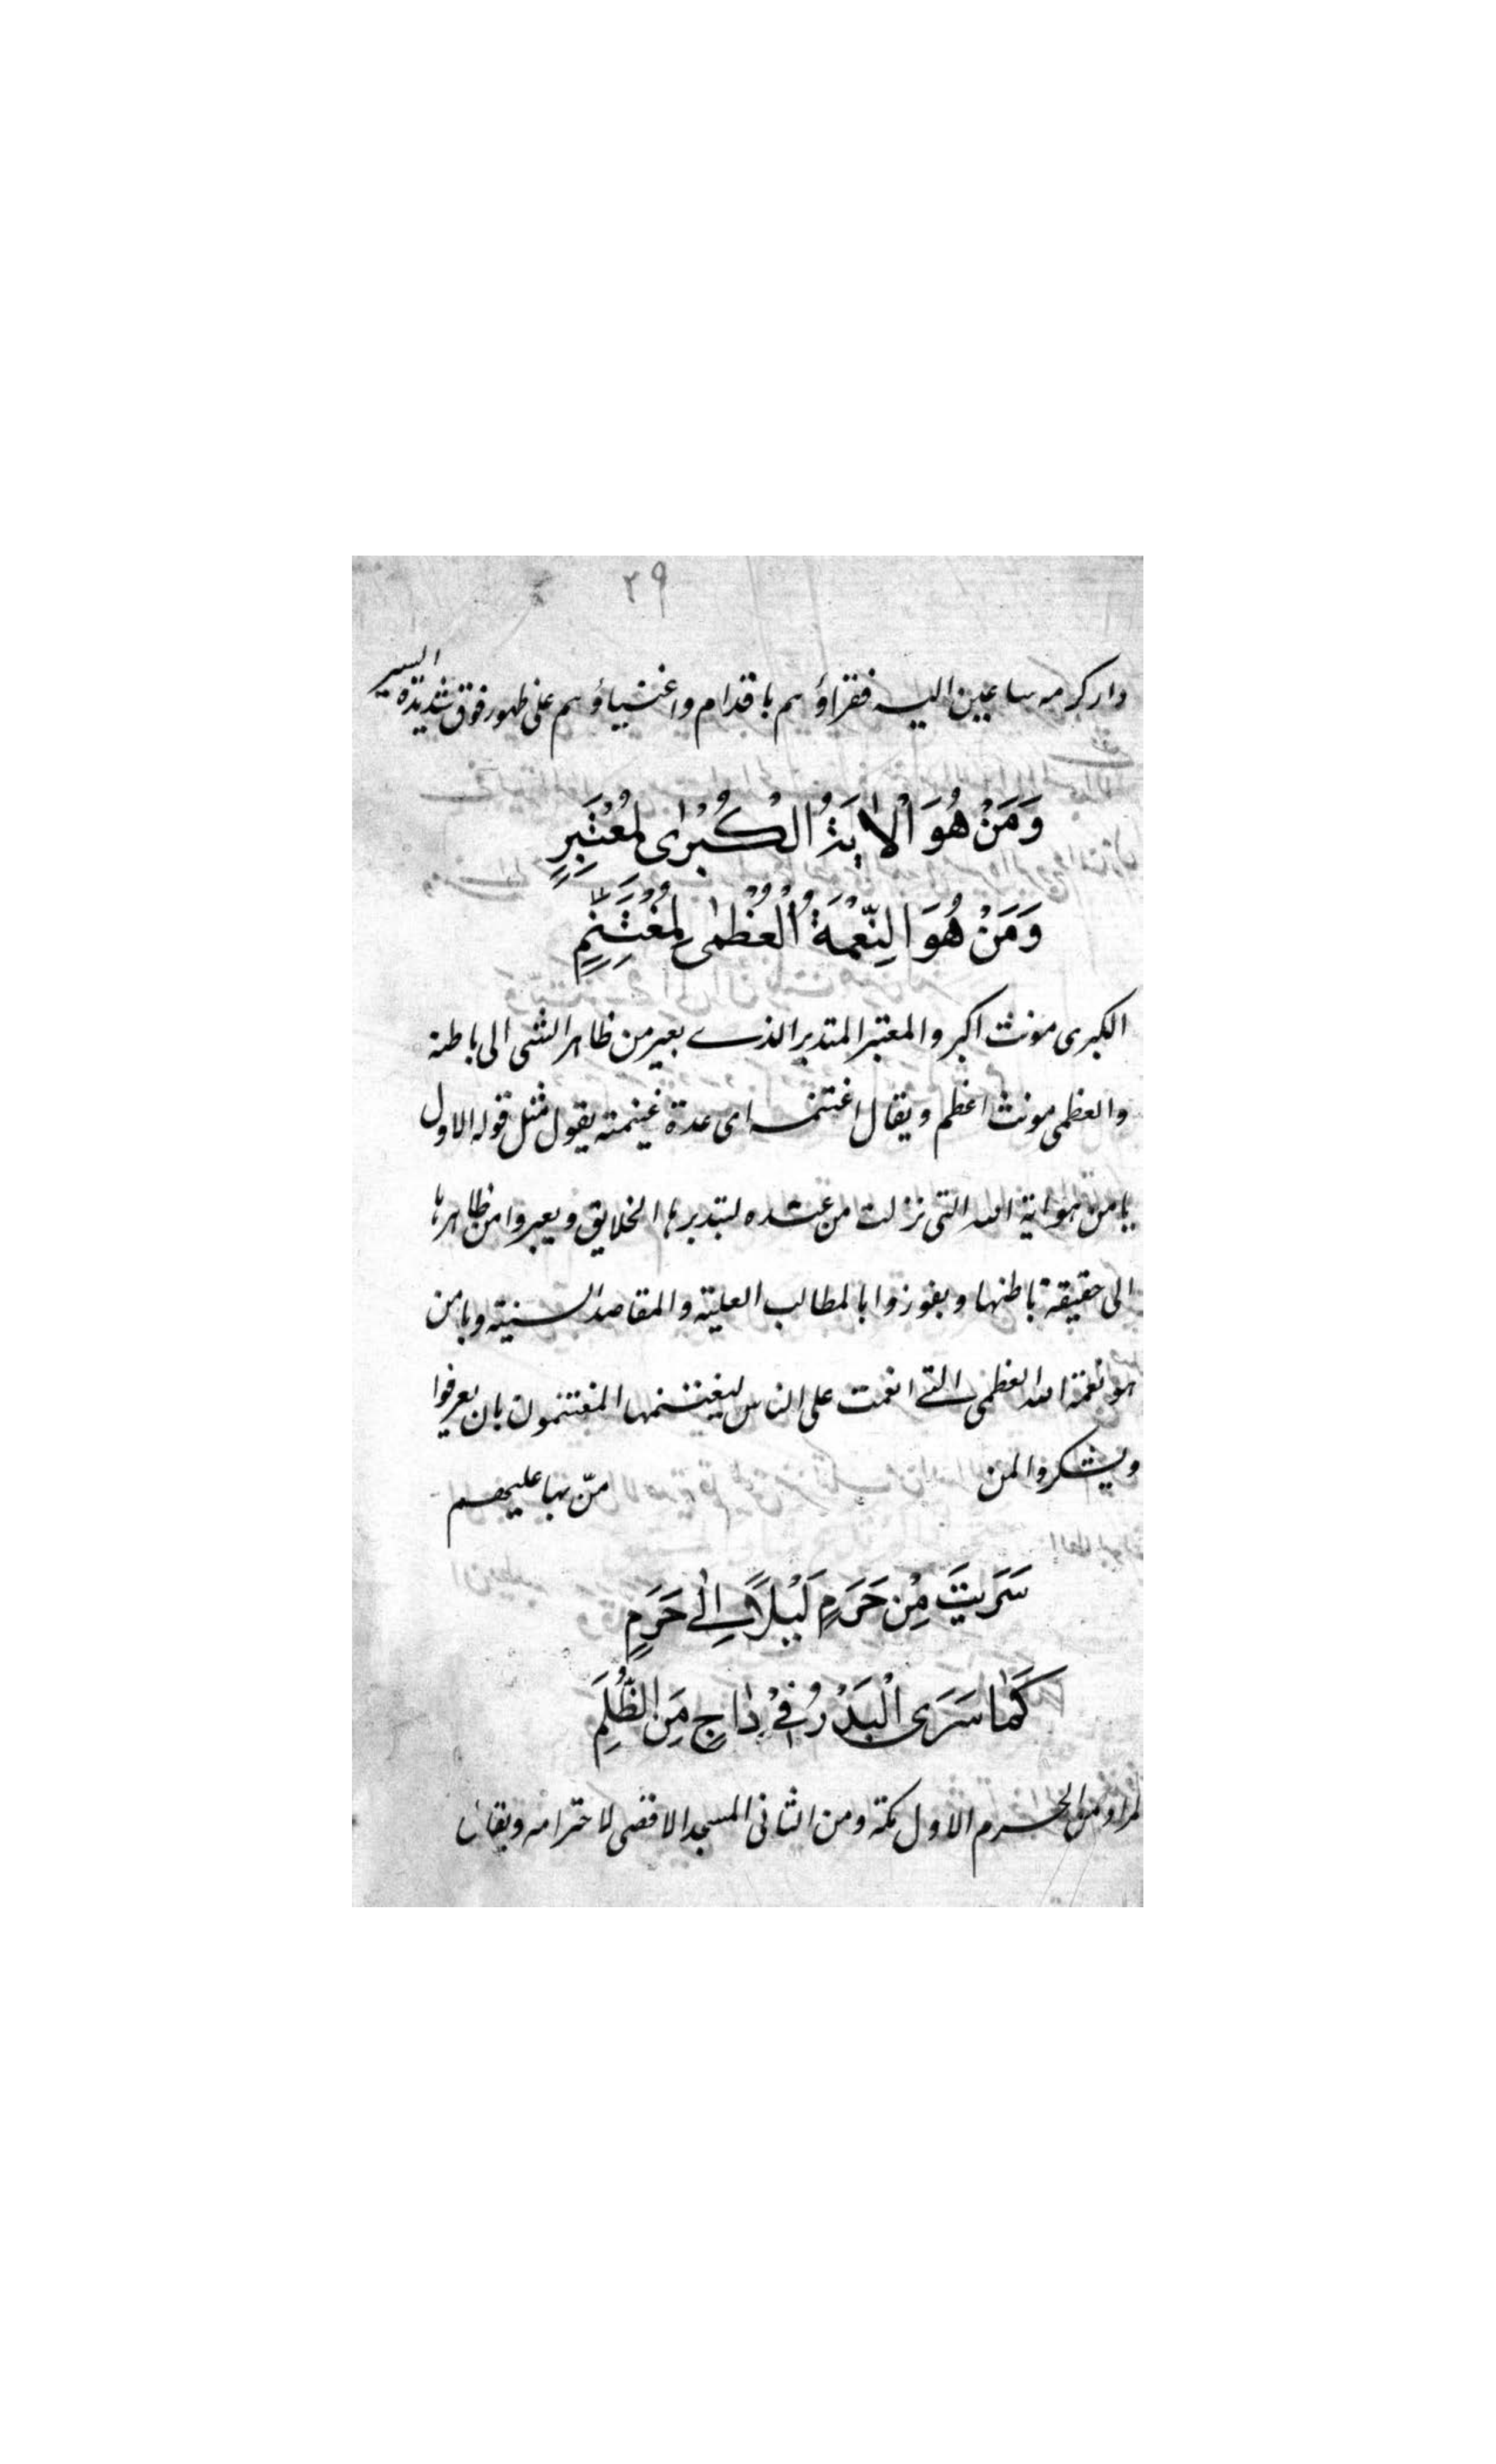 ٢٩
دار كرمه ساعين اليه فقراؤهم باقدام واغنياؤهم على ظهور فوق شديدة السير
وَمَنْ هُوَ الْاٰيَةُ الْكُبْرٰى لِمُعْتَبِرٍ
وَمَنْ هُوَ النِّعْمَةُ الْعُظْمٰى لِمُغْتَنِمٍ
الكبرى مونث اكبر والمعتبر المتدبر الذے يعبر من ظاهر الشى الى باطنه
والعظمى مونث اعظم ويقال اغتنمه اى عدة غنيمته يقول مثل قوله الاول
يا من هو اية الله التى نزلت من عنده لتبدبرها الخلايق ويعبروا من ظاهرها
الى حقيقة باطنها ويفوزوا بالمطالب العلية والمقاصد السنية ويا من
هو نعمة الله العظمى التے انعمت على الناس ليغتنمها المغتنمون بان يعرفوا
ويشكروا لمن منّ بها عليهم
سَرَيْتَ مِنْ حَرَمٍ لَيْلًا اِلٰى حَرَمٍ
كَمَا سَرَى الْبَدْرُ فِيْ دَاجٍ مِنَ الظُّلَمِ
لمراد من الحرم الاول مكة ومن الثانى المسجد الاقصى لاحترامه ويقال